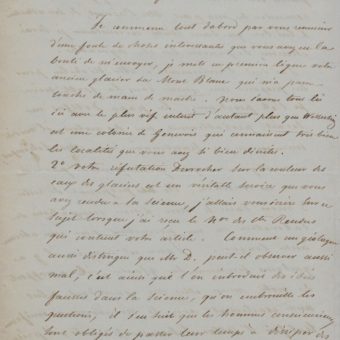 Je commence tout d'abord par vous remercier
d'une foule de choses intéressantes que vous avez eu la
bonté de m'envoyer, je mets en première ligne votre
ancien glacier du Mont Blanc qui m'a paru
touché de main de maître. Nous savons tous lu
ici avec le plus vif intérêt d'autant plus que
est une colonie de Génevois qui connaissent très bien
les localités que vous avez si bien décrites.
2° votre réfutation Durocher sur la couleur des
eaux des glaciers est un véritable service que vous
avez rendu à la science, j'allais écrire sur ce
sujet lorsque j'ai reçu le N° des
qui contient votre article. Comment un géologue
aussi distingué que Mr D. peut-il observer aussi
mal, c'est ainsi que l'on introduit des idées
fausses dans la Science, qu'on embrouille les
questions, il s'en suit que les hommes consciencieux
sont obligés de passer leur temps à dissiper des